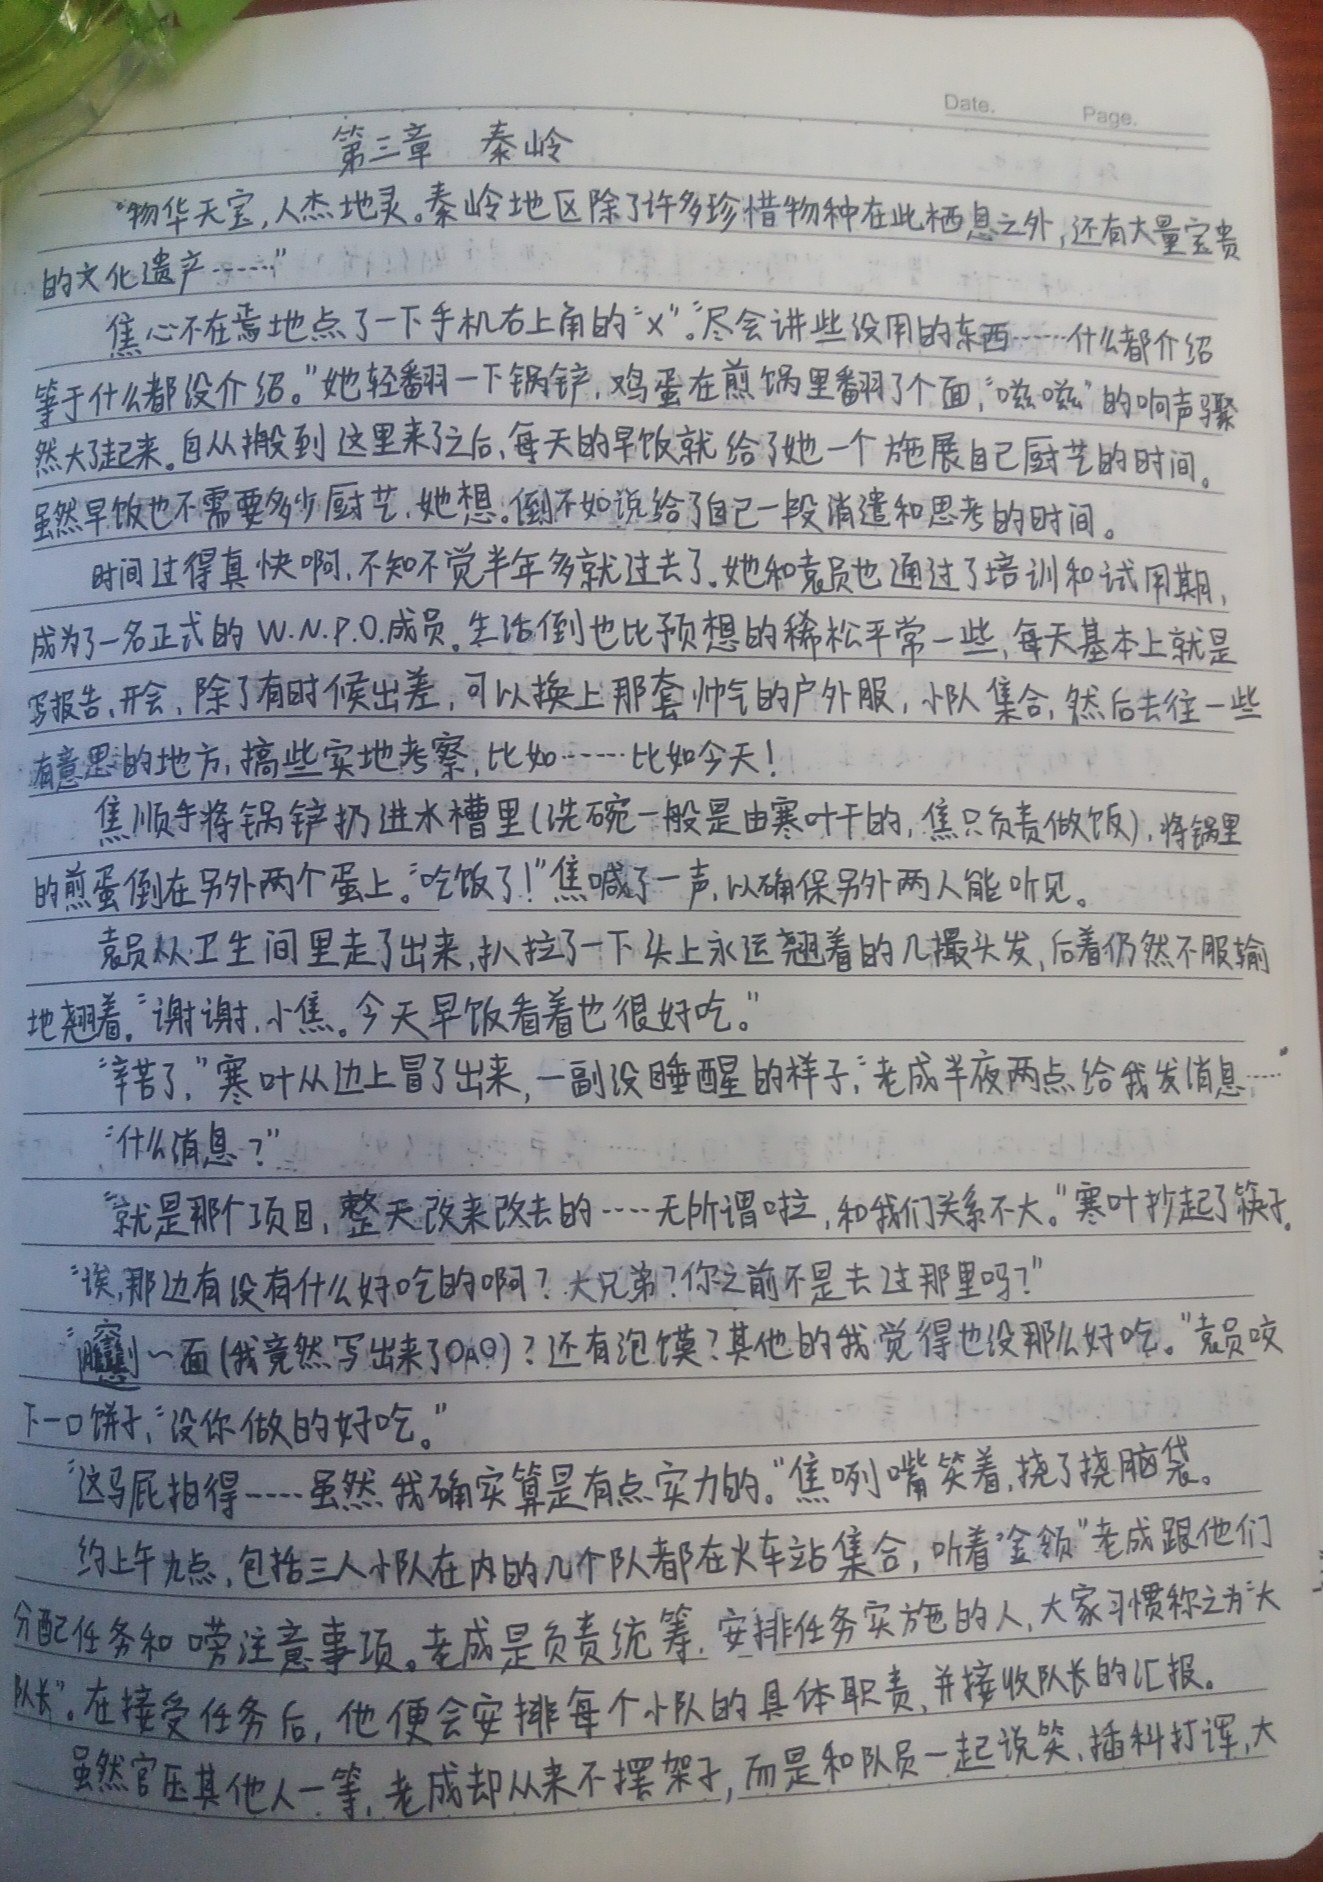 Date.
Page.
第三章 秦岭
“物华天宝,人杰地灵。秦岭地区除了许多珍惜物种在此栖息之外,还有大量宝贵
的文化遗产……”
焦心不在焉地点了一下手机右上角的“X”。“尽会讲些没用的东西……什么都介绍
等于什么都没介绍。”她轻翻一下锅铲,鸡蛋在煎锅里翻了个面,“嗞嗞”的响声骤
然大了起来。自从搬到这里来了之后,每天的早饭就给了她一个施展自己厨艺的时间。
虽然早饭也不需要多少厨艺,她想。倒不如说给了自己一段消遣和思考的时间。
时间过得真快啊,不知不觉半年多就过去了。她和袁员也通过了培训和试用期,
成为了一名正式的W.N.P.O.成员。生活倒也比预想的稀松平常一些,每天基本上就是
写报告、开会,除了有时候出差,可以换上那套帅气的户外服,小队集合,然后去往一些
有意思的地方,搞些实地考察,比如……比如今天!
焦顺手将锅铲扔进水槽里(洗碗一般是由寒叶干的,焦只负责做饭),将锅里
的煎蛋倒在另外两个蛋上。“吃饭了!”焦喊了一声,以确保另外两人能听见。
袁员从卫生间里走了出来,扒拉了一下头上永远翘着的几撮头发,后着仍然不服输
地翘着。“谢谢,小焦。今天早饭看着也很好吃。”
“辛苦了,”寒叶从边上冒了出来,一副没睡醒的样子,“老成半夜两点给我发消息……
“什么消息?”
“就是那个项目,整天改来改去的……无所谓啦,和我们关系不大。”寒叶抄起了筷子。
“诶,那边有没有什么好吃的啊?大兄弟?你之前不是去过那里吗?”
“𰻝~面(我竟然写出来了OAO)?还有泡馍?其他的我觉得也没那么好吃。”袁员咬
下一口饼子,“没你做的好吃。”
“这马屁拍得……虽然我确实算是有点实力的。”焦咧嘴笑着,挠了挠脑袋。
约上午九点,包括三人小队在内的几个队都在火车站集合,听着“金领”老成跟他们
分配任务和唠注意事项。老成是负责统筹、安排任务实施的人,大家习惯称之为“大
队长”。在接受任务后,他便会安排每个小队的具体职责,并接收队长的汇报。
虽然官压其他人一等,老成却从来不摆架子,而是和队员一起说笑、插科打诨,大